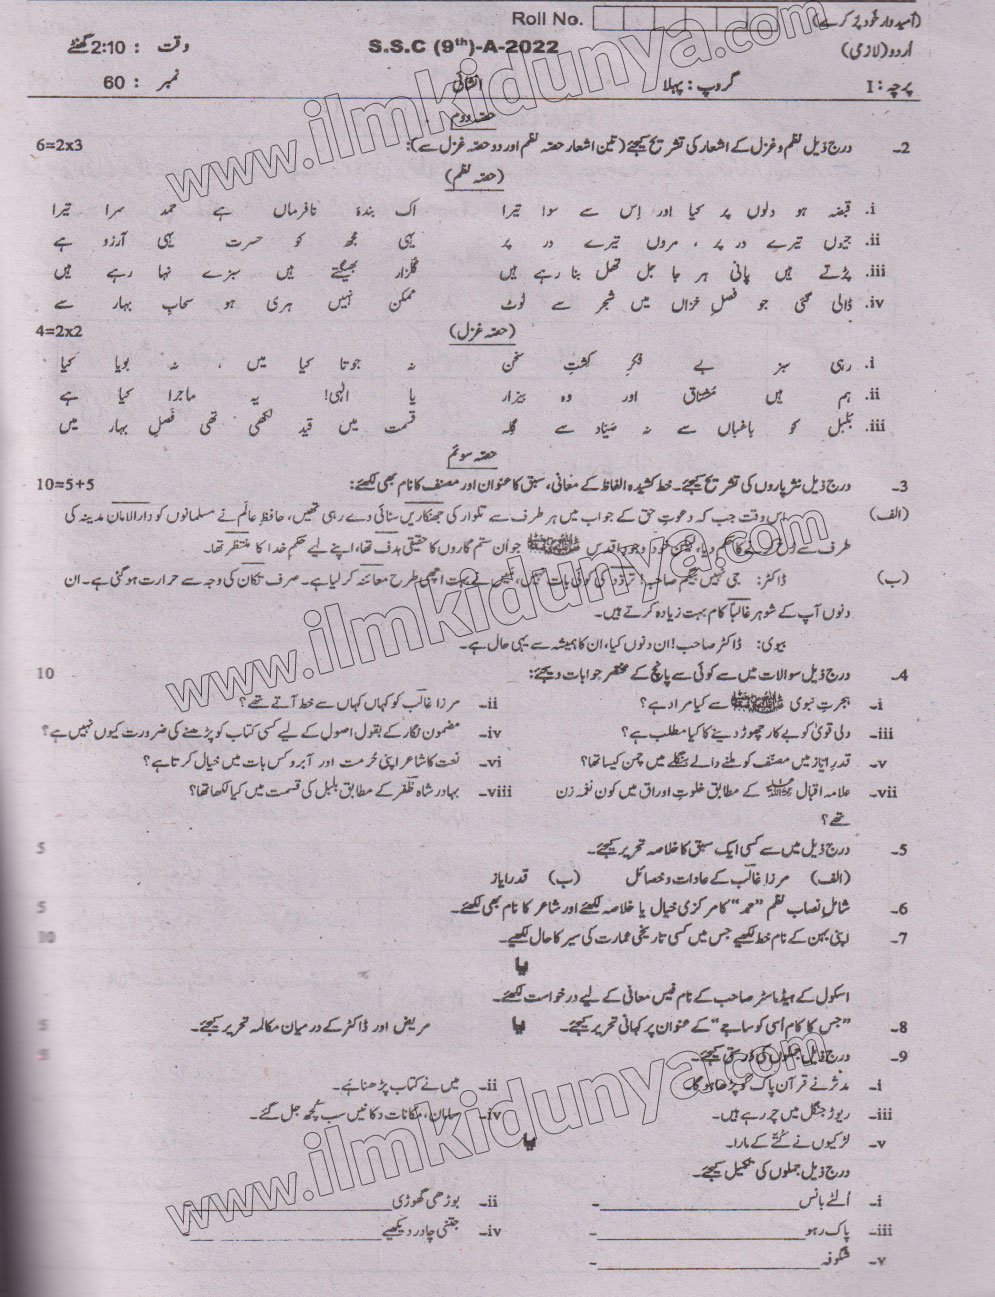 Roll No. (امیدوار خود پُر کرے)
اُردو (لازمی) S.S.C (9th)-A-2022 وقت : 2:10 گھنٹے
پرچہ : I گروپ : پہلا انشائی نمبر : 60
حصّہ دوم
2- درج ذیل نظم و غزل کے اشعار کی تشریح کیجئے (تین اشعار حصّہ نظم اور دو حصّہ غزل سے): 6=2x3
(حصّہ نظم)
i. قبضہ ہو دلوں پر کیا اور اِس سے سوا تیرا اک بندۂ نافرماں ہے حمد سرا تیرا
ii. جیوں تیرے در پر ، مروں تیرے در پر یہی مجھ کو حسرت یہی آرزو ہے
iii. پڑتے ہیں پانی ہر جا جل تھل بنا رہے ہیں گلزار بھیگتے ہیں سبزے نہا رہے ہیں
iv. ڈالی گئی جو فصلِ خزاں میں شجر سے ٹوٹ ممکن نہیں ہری ہو سحابِ بہار سے
4=2x2 (حصّہ غزل)
i. رہی سبز بے فکرِ کشتِ سخن نہ جوتا کیا میں ، نہ بویا کیا
ii. ہم ہیں مُشتاق اور وہ بیزار یا الٰہی! یہ ماجرا کیا ہے
iii. بُلبُل کو باغباں سے نہ صیّاد سے گلہ قسمت میں قید لکھی تھی فصلِ بہار میں
حصّہ سوئم
3- درج ذیل نثرپاروں کی تشریح کیجئے۔ خط کشیدہ الفاظ کے معانی، سبق کا عنوان اور مصنف کا نام بھی لکھئے: 10=5+5
(الف) اس وقت جب کہ دعوتِ حق کے جواب میں ہر طرف سے تلوار کی جھنکاریں سنائی دے رہی تھیں، حافظِ عالَم نے مسلمانوں کو دارالامان مدینہ کی
طرف رخ کرنے کا حکم دیا، لیکن خود وجودِ اقدس ﷺ جو اُن ستم گاروں کا حقیقی ہدف تھا، اپنے لیے حکمِ خدا کا منتظر تھا۔
(ب) ڈاکٹر: جی نہیں بیگم صاحبہ! تردّد کی کوئی بات نہیں، میں نے بہت اچھی طرح معائنہ کر لیا ہے۔ صرف تکان کی وجہ سے حرارت ہو گئی ہے۔ ان
دنوں آپ کے شوہر غالباً کام بہت زیادہ کرتے ہیں۔
بیوی: ڈاکٹر صاحب! ان دنوں کیا، ان کا ہمیشہ سے یہی حال ہے۔
4- درج ذیل سوالات میں سے کوئی سے پانچ کے مختصر جوابات دیجئے: 10
i- ہجرتِ نبوی ﷺ سے کیا مراد ہے؟ ii- مرزا غالب کو کہاں کہاں سے خط آتے تھے؟
iii- دلی قویٰ کو بے کار چھوڑ دینے کا کیا مطلب ہے؟ iv- مضمون نگار کے بقول اصول کے لیے کسی کتاب کو پڑھنے کی ضرورت کیوں نہیں ہے؟
v- قدرِ ایاز میں مصنّف کو ملنے والے بنگلے میں چمن کیسا تھا؟ vi- نعت کا شاعر اپنی حُرمت اور آبرو کس بات میں خیال کرتا ہے؟
vii- علامہ اقبال کے مطابق خلوتِ اوراق میں کون نغمہ زن viii- بہادر شاہ ظفر کے مطابق بلبل کی قسمت میں کیا لکھا تھا؟
تھے؟
5- درج ذیل میں سے کسی ایک سبق کا خلاصہ تحریر کیجئے۔ 5
(الف) مرزا غالب کے عادات و خصائل (ب) قدرِ ایاز
6- شاملِ نصاب نظم ”حمد“ کا مرکزی خیال یا خلاصہ لکھئے اور شاعر کا نام بھی لکھئے۔ 5
7- اپنی بہن کے نام خط لکھیے جس میں کسی تاریخی عمارت کی سیر کا حال لکھیے۔ 10
یا
اسکول کے ہیڈ ماسٹر صاحب کے نام فیس معافی کے لیے درخواست لکھئے۔
8- ”جس کا کام اُسی کو ساجے“ کے عنوان پر کہانی تحریر کیجئے۔ یا مریض اور ڈاکٹر کے درمیان مکالمہ تحریر کیجئے۔ 5
9- درج ذیل جملوں کی درستی کیجئے۔ 5
i- مدثر نے قرآن پاک کو پڑھا ہو گا۔ ii- میں نے کتاب پڑھنا ہے۔
iii- ریوڑ جنگل میں چر رہے ہیں۔ iv- سامان، مکانات دکانیں سب کُچھ جل گئے۔
v- لڑکیوں نے کُتّے کے مارا۔ یا
درج ذیل جملوں کی تکمیل کیجئے۔
i- اُلٹے بانس ______- ii- بوڑھی گھوڑی ______-
iii- پاک رہو ______- iv- جتنی چادر دیکھیے ______-
v- شگوفہ ______-
www.ilmkidunya.com
www.ilmkidunya.com
www.ilmkidunya.com